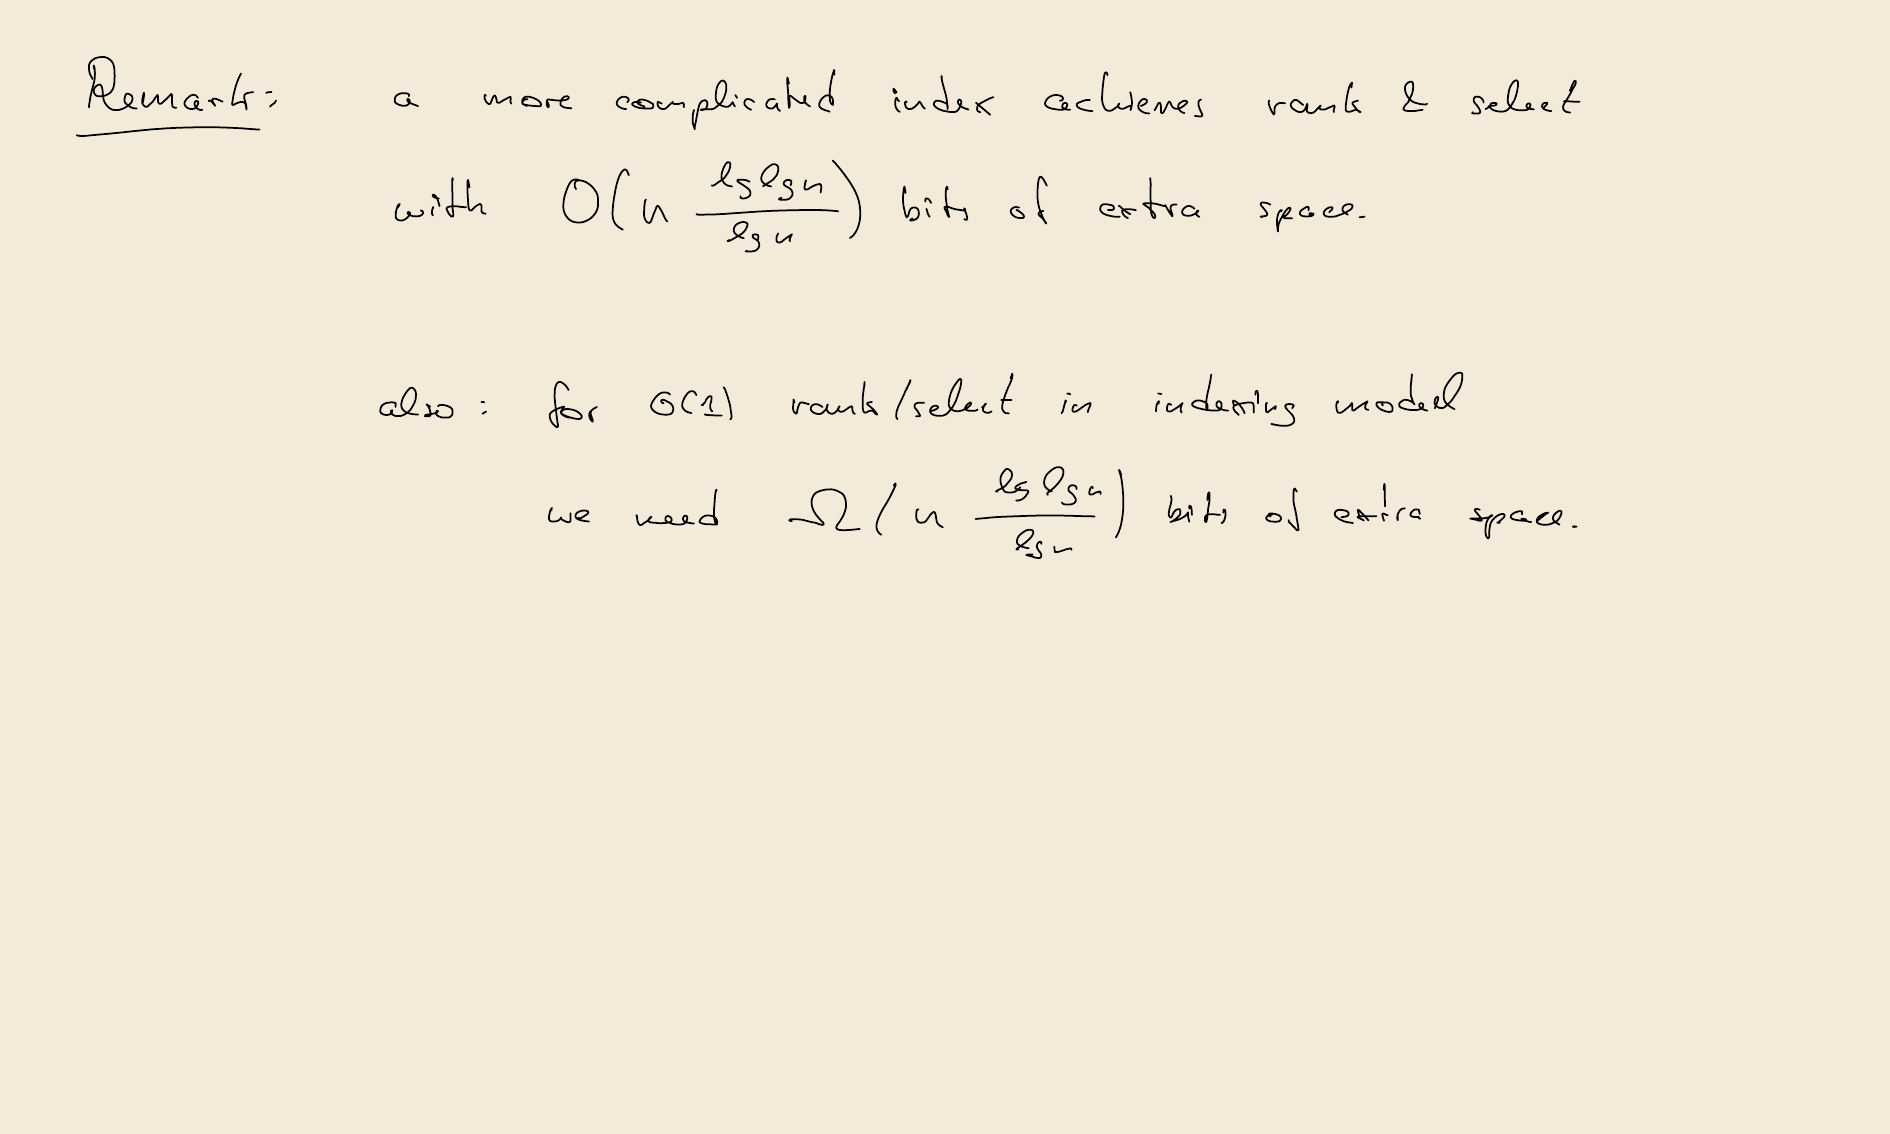 Remark: a more complicated index achieves rank & select
with O(n lg lg n / lg n) bits of extra space.
also: for O(1) rank/select in indexing model
we need Ω(n lg lg n / lg n) bits of extra space.